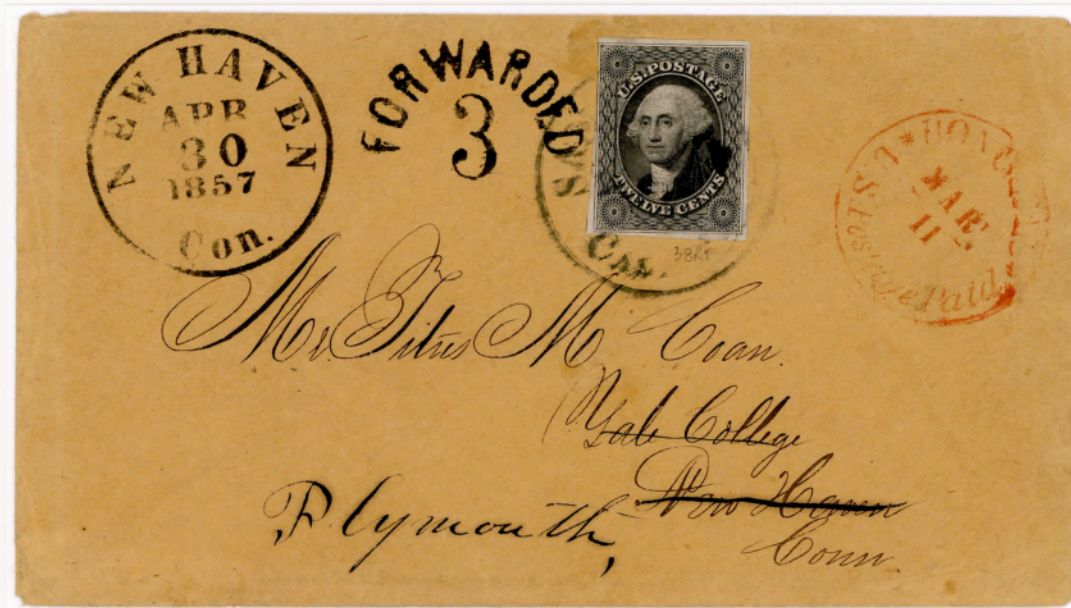 NEW HAVEN
APR
30
1857
Con.
FORWARDED
3
U.S. POSTAGE
TWELVE CENTS
CAL.
HONO
MAR.
11
U.S. Postage Paid
Mr. Titus M Coan.
Yale College
New Haven
Plymouth,
Conn.